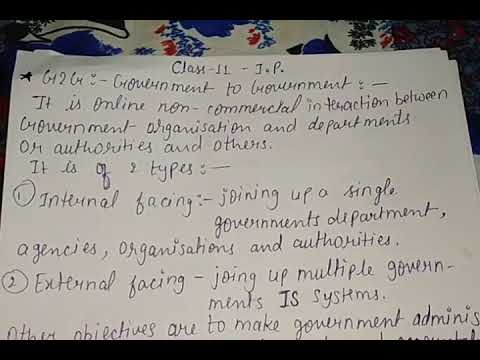 Class-11 - I.P.
* G2G :- Government to Government :-
It is online non-commercial interaction between
Government organisation and departments
or authorities and others.
It is of 2 types :-
① Internal facing :- joining up a single
governments department,
agencies, organisations and authorities.
② External facing - joining up multiple govern-
ments IS systems.
Other objectives are to make government adminis